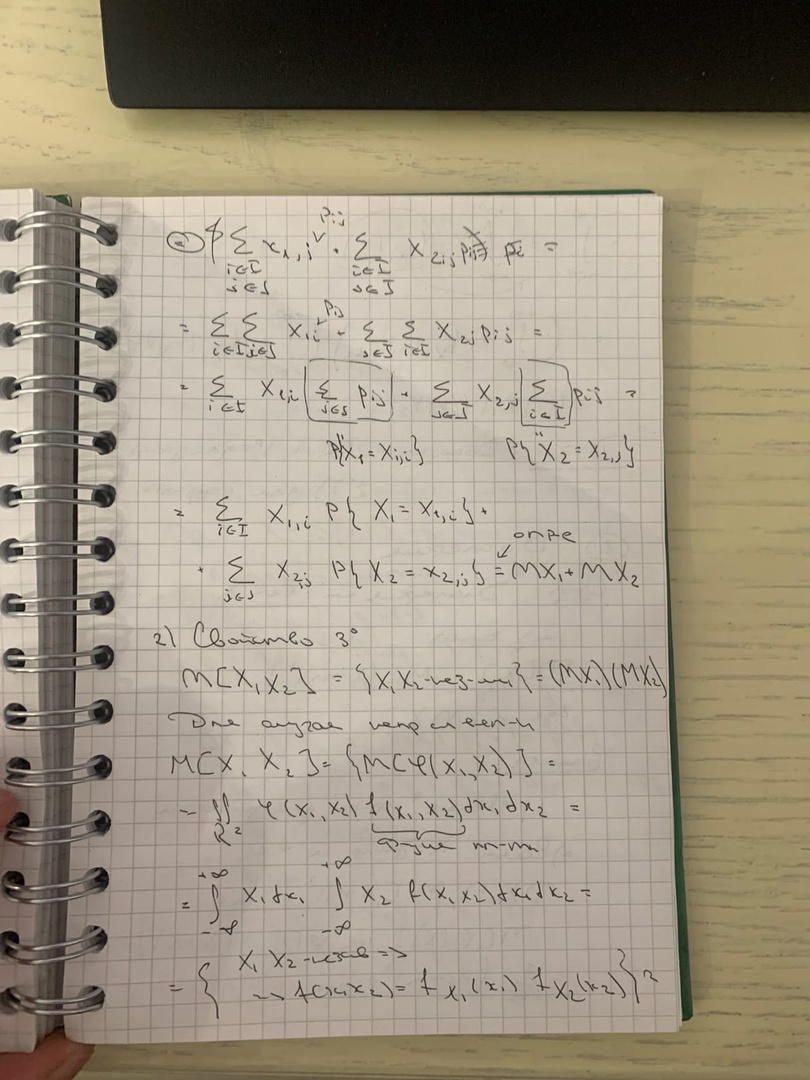 = ∑_{i∈I, j∈J} x_{1,i} p_{ij} + ∑_{i∈I, j∈J} x_{2,j} p_{ij} =
= ∑_{i∈I} ∑_{j∈J} x_{1,i} p_{ij} + ∑_{j∈J} ∑_{i∈I} x_{2,j} p_{ij} =
= ∑_{i∈I} x_{1,i} ∑_{j∈J} p_{ij} + ∑_{j∈J} x_{2,j} ∑_{i∈I} p_{ij} =
P{X_1 = x_{1,i}} P{X_2 = x_{2,j}}
= ∑_{i∈I} x_{1,i} P{X_1 = x_{1,i}} +
+ ∑_{j∈J} x_{2,j} P{X_2 = x_{2,j}} = MX_1 + MX_2
2) Свойство 3°
M[X_1 X_2] = {X_1 X_2 - нез-мы} = (MX_1)(MX_2)
Для случая
M[X_1 X_2] = {M[φ(X_1, X_2)] =
= ∬_{R^2} φ(x_1, x_2) f(x_1, x_2) dx_1 dx_2 =
= ∫_{-∞}^{+∞} x_1 dx_1 ∫_{-∞}^{+∞} x_2 f(x_1 x_2) dx_1 dx_2 =
X_1 X_2 - незав =>
= { => f(x_1 x_2) = f_{X_1}(x_1) f_{X_2}(x_2) } =